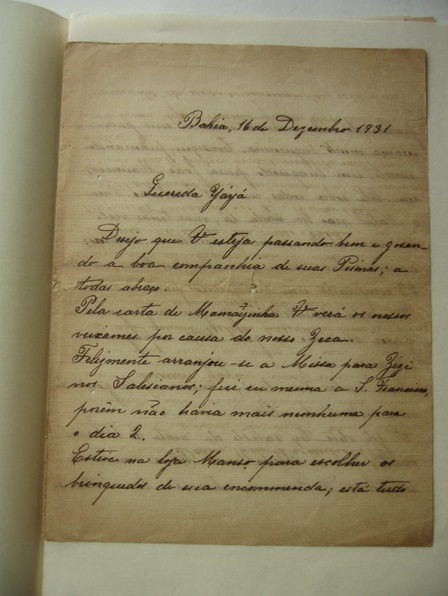 Bahia, 16 de Dezembro 1931
Querida Yáyá
Desejo que V esteja passando bem e gosan-
do a boa companhia de suas Primas; a
todas abraço.
Pela carta de Mamãezinha V verá os nossos
veixames por causa do nosso Zeca.
Felizmente arranjou-se a Missa para Zizi
nos Salesianos; fui eu mesma a S. Francisco,
porêm não havia mais nenhuma para
o dia 2.
Estive na loja Manso para escolher os
brinquedos de sua encommenda; está tudo